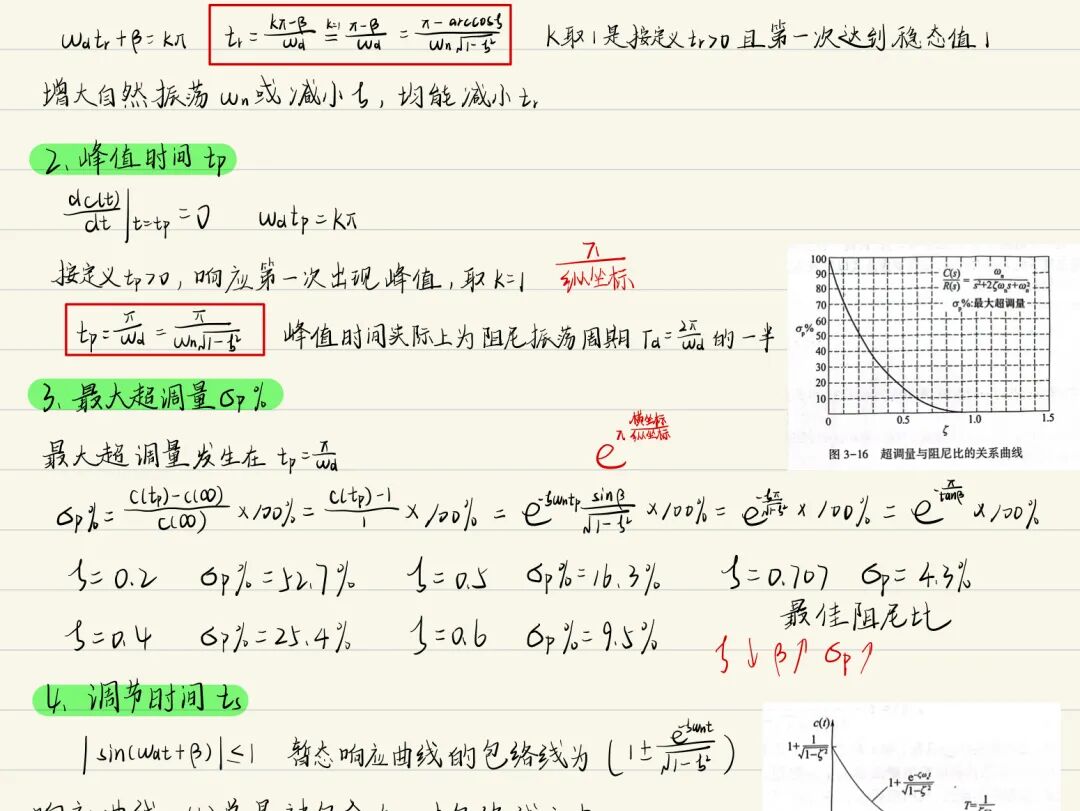 ωdtr+β=kπ tr=(kπ-β)/ωd =(k=1) (π-β)/ωd = (π-arccosζ)/(ωn√(1-ζ²)) K取1是按定义tr>0且第一次达到稳态值1
增大自然振荡ωn或减小ζ，均能减小tr
2、峰值时间tp
dc(t)/dt|t=tp=0 ωdtp=kπ
按定义tp>0，响应第一次出现峰值，取K=1 π/纵坐标
tp=π/ωd=π/(ωn√(1-ζ²)) 峰值时间实际上为阻尼振荡周期Td=2π/ωd的一半
3、最大超调量σp%
最大超调量发生在tp=π/ωd
e^(π 横坐标/纵坐标)
σp%=(c(tp)-c(∞))/c(∞)×100%=(c(tp)-1)/1×100%=e^(-ζωntp) sinβ/√(1-ζ²)×100%=e^(-ζπ/√(1-ζ²))×100%=e^(-π/tanβ)×100%
ζ=0.2 σp%=52.7% ζ=0.5 σp%=16.3% ζ=0.707 σp=4.3%
最佳阻尼比
ζ=0.4 σp%=25.4% ζ=0.6 σp%=9.5%
ζ↓β↑σp↑
4、调节时间ts
|sin(ωdt+β)|≤1 暂态响应曲线的包络线为(1±e^(-ζωnt)/√(1-ζ²))
C(s)/R(s)=ωn/(s²+2ζωns+ωn²)
σp%:最大超调量
σp%
100
90
80
70
60
50
40
30
20
10
0 0.5 1.0 1.5
ζ
图 3-16 超调量与阻尼比的关系曲线
c(t)
1+1/√(1-ζ²)
1+e^(-ζωnt)/√(1-ζ²)